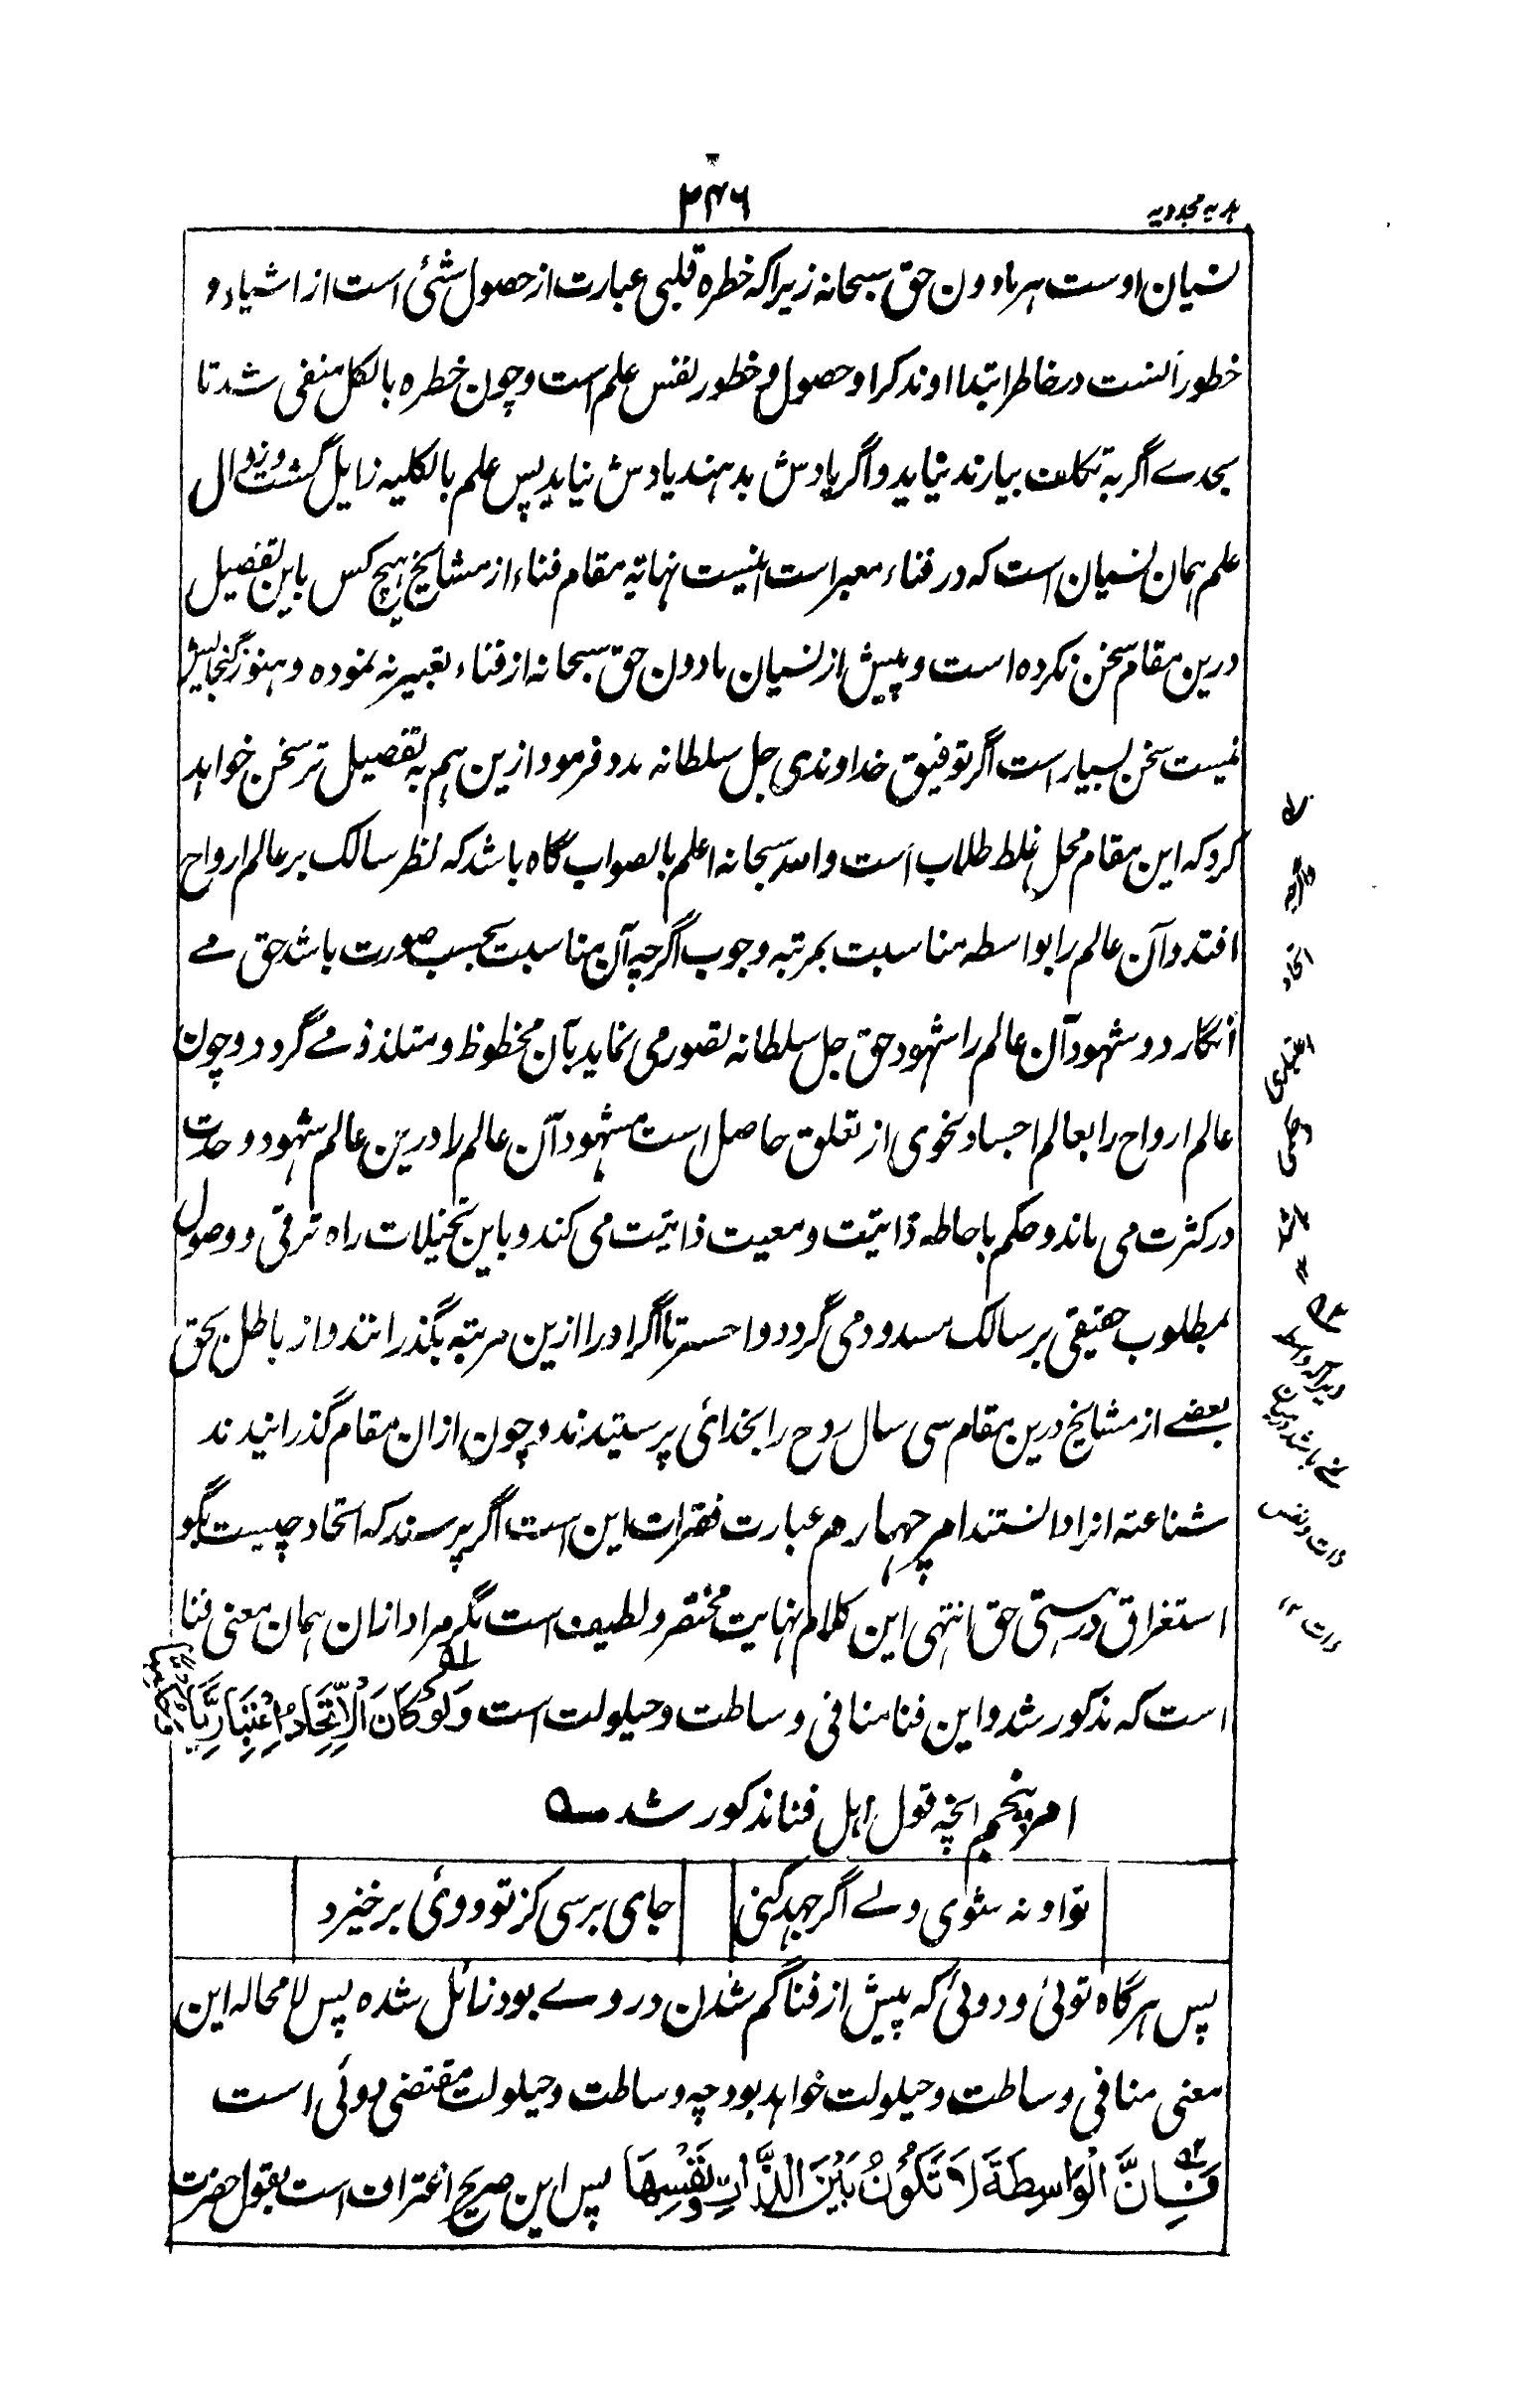 ۳۴۶
ہدیہ مجددیہ
نسیان اوست ہر مادون حق سبحانہ زیرا کہ خطرہ قلبی عبارت از حصول شئی است از اشیاء و
خطور آنست در خاطر ابتداء او تذکرا و حصول و خطور نفس علم است و چون خطرہ بالکل منفی شد تا
بحدے اگر بہ تکلف بیارند نیاید و اگر یادش بدہند یادش نیاید پس علم بالکلیہ زایل گشت و زوال
علم ہمان نسیان است کہ در فناء معبر است اینست نہایۃ مقام فناء از مشایخ ہیچ کس باین تفصیل
درین مقام سخن نکردہ است و پیش از نسیان مادون حق سبحانہ از فناء تعبیر نہ نمودہ و ہنوز گنجایش
نیست سخن بسیار است اگر توفیق خداوندی جل سلطانہ مدد فرمود ازین ہم بہ تفصیل تر سخن خواہد
کرد کہ این مقام محل غلط طلاب است واللہ سبحانہ اعلم بالصواب گاہ باشد کہ نظر سالک بر عالم ارواح
افتد و آن عالم را بواسطہ مناسبت بمرتبہ وجوب اگر چہ آن مناسبت بحسب صورت باشد حق مے
انگارد و شہود آن عالم را شہود حق جل سلطانہ تصور می نماید بآن محظوظ و متلذذ مے گردد و چون
عالم ارواح را بعالم اجساد نحوی از تعلق حاصل است مشہود آن عالم را درین عالم شہود وحدت
در کثرت می ماند و حکم باحاطہ ذاتیت و معیت ذاتیت می کند و باین تخیلات راہ ترقی و وصول
بمطلوب حقیقی بر سالک مسدود می گردد واحسرتا اگر او را ازین مرتبہ بگذرانند و از باطل بحق
بعضے از مشایخ درین مقام سی سال روح را بخدائی پرستیدند و چون ازان مقام گذرانیدند
شناعتہ انرا دانستند امر چہارم عبارت فقرات این است اگر پرسند کہ اتحاد چیست بگو
استغراق در ہستی حق انتہی این کلام نہایت مختصر و لطیف است مگر مراد ازان ہمان معنی فنا
است کہ مذکور شد و این فنا منافی وساطت و حیلولت است وَلَوْ كَانَ الْاِتِّحَادُ اِعْتِبَارِيًّا
امر پنجم انچہ قول اہل فنا مذکور شد
تو او نہ شوی ولے اگر جہد کنی جای برسی کز تو دوئی برخیزد
پس ہر گاہ توئی و دوئی کہ پیش از فنا گم شدن در وے بود زائل شدہ پس لا محالہ این
معنی منافی وساطت و حیلولت خواہد بود چہ وساطت و حیلولت مقتضی دوئی است
فَاِنَّ الْوَاسِطَةَ لَا تَكُوْنُ بَيْنَ الذَّاتِ وَنَفْسِهَا پس این صریح اعتراف است بقول حضرت
اگرچہ
اتحاد
اعتباری
باشد
۵۲
زیرا کہ واسطہ
نمے باشد درمیان
ذات و نفس
ذات ۱۲